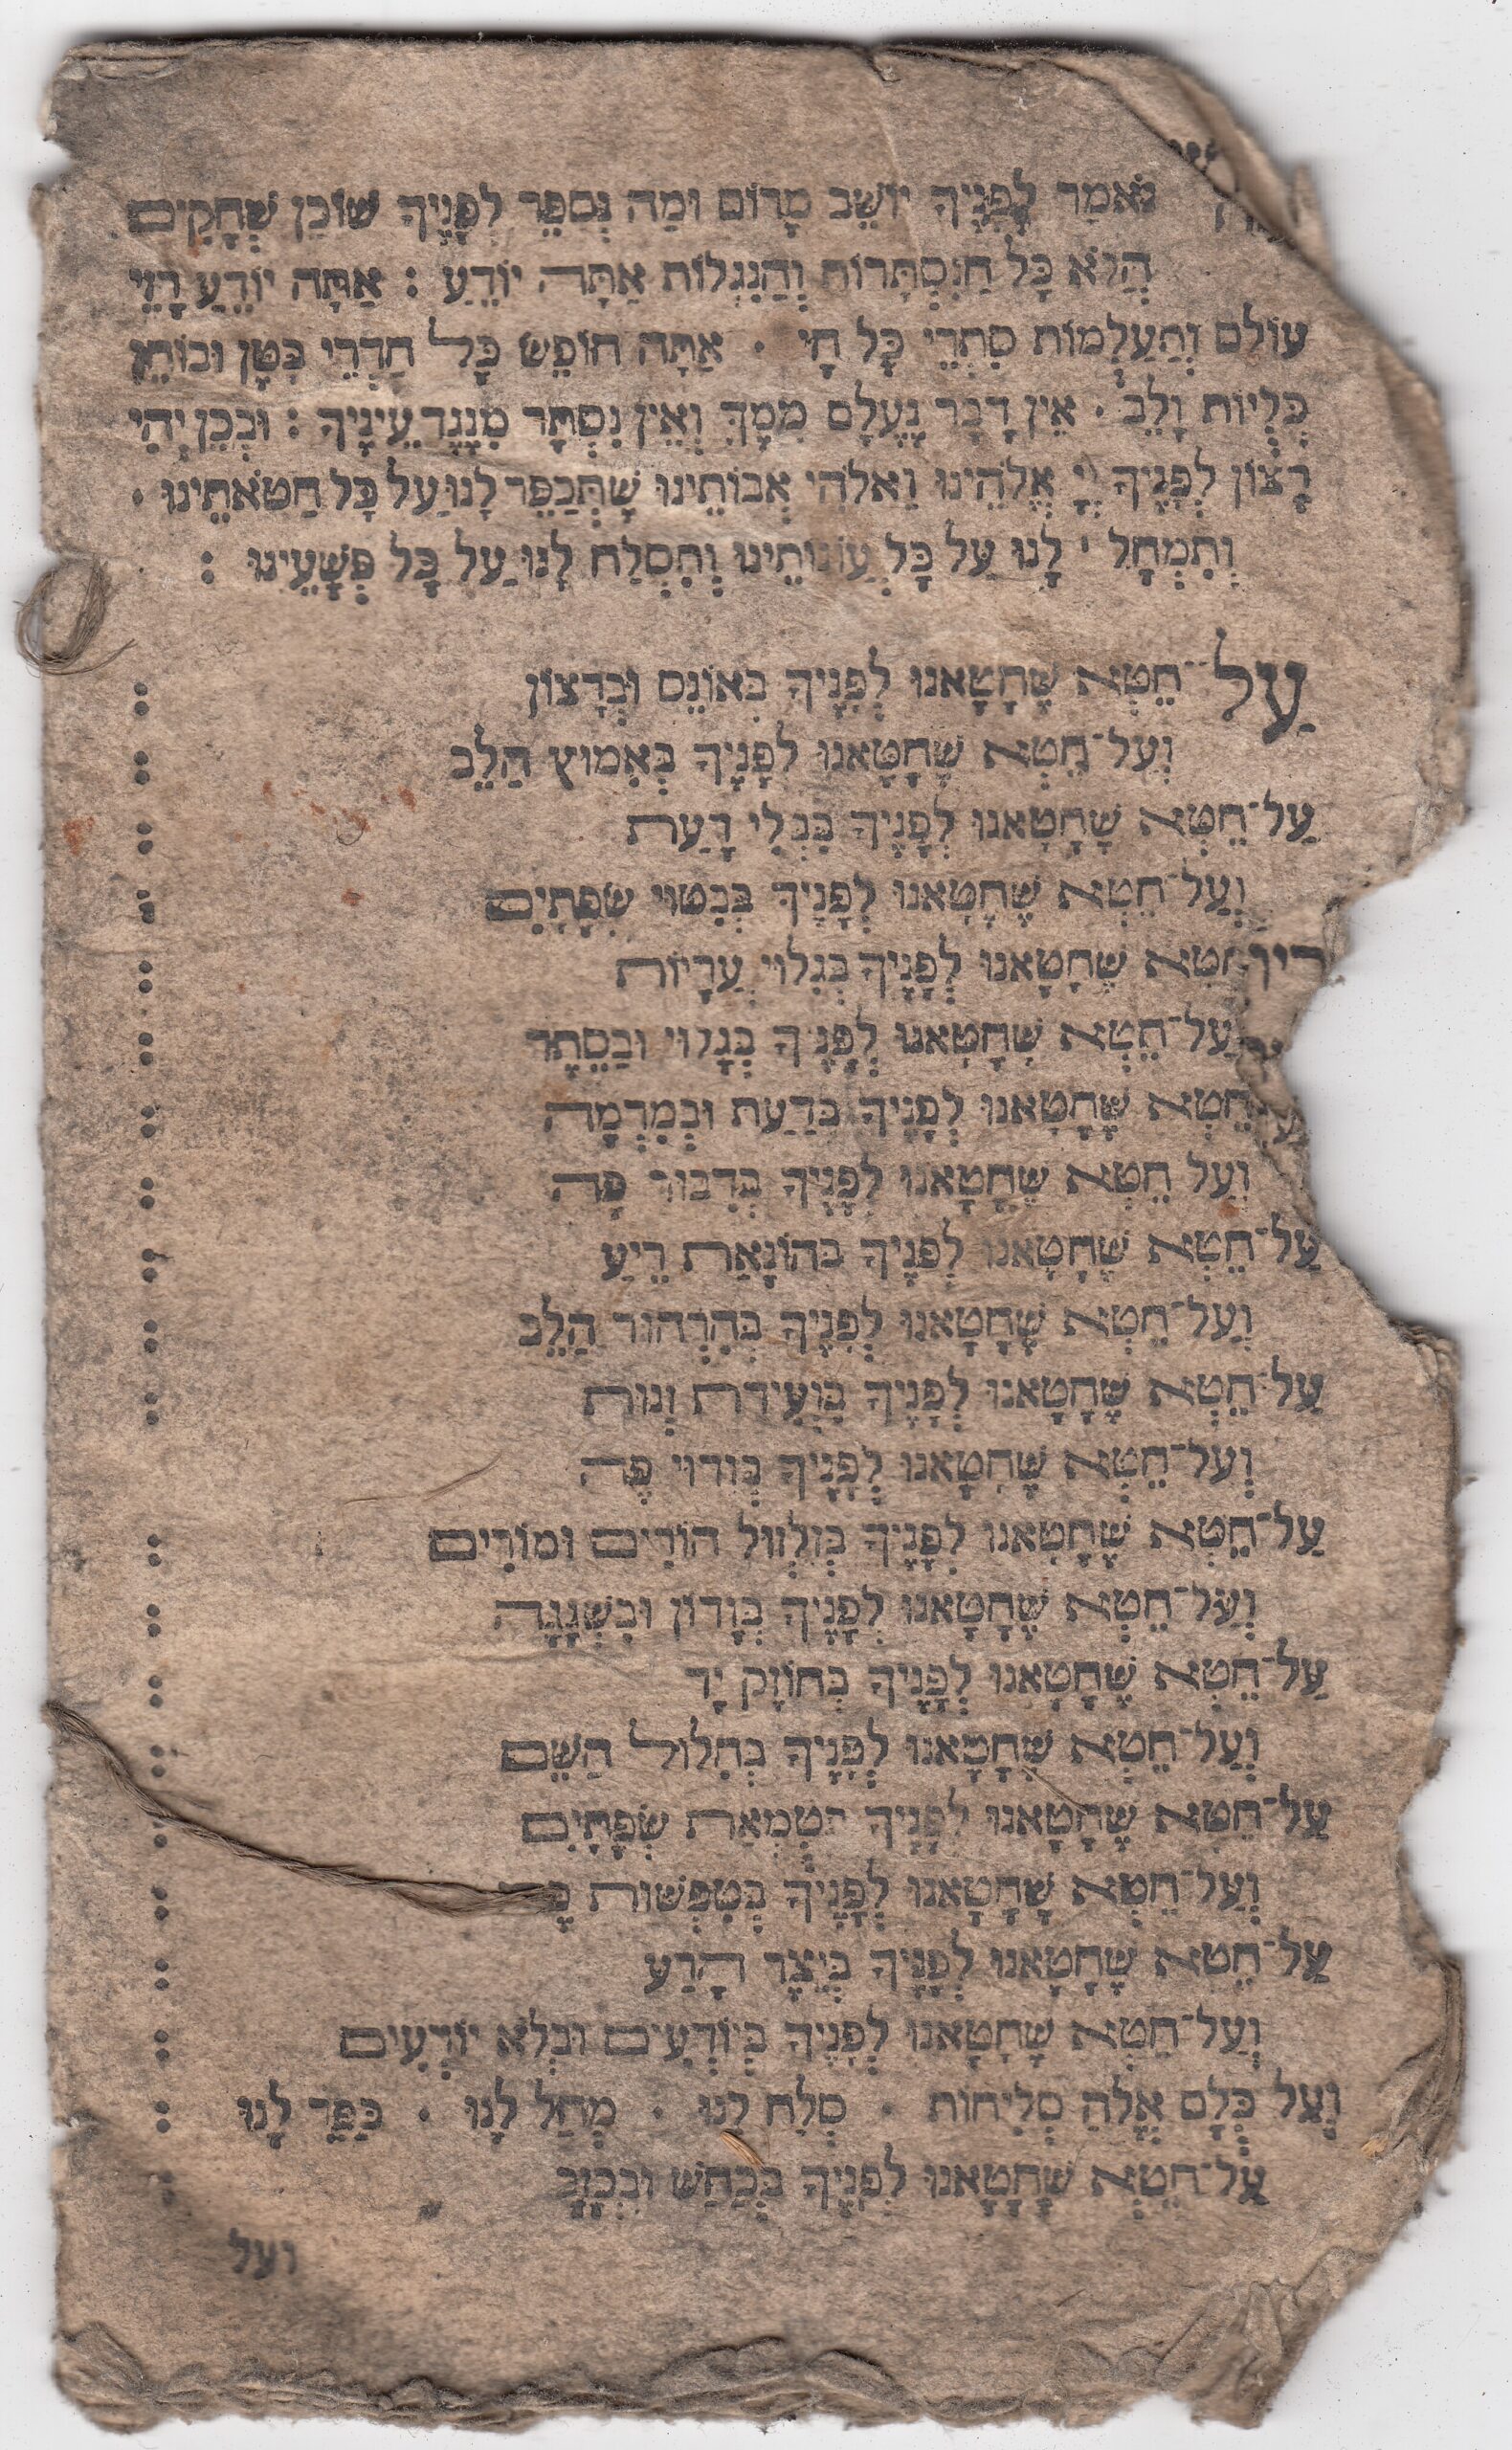 נֹּאמַר לְפָנֶיךָ יוֹשֵׁב מָרוֹם וּמַה נְּסַפֵּר לְפָנֶיךָ שׁוֹכֵן שְׁחָקִים
הֲלֹא כָּל הַנִּסְתָּרוֹת וְהַנִּגְלוֹת אַתָּה יוֹדֵעַ : אַתָּה יוֹדֵעַ רָזֵי
עוֹלָם וְתַעֲלֻמוֹת סִתְרֵי כָּל חָי · אַתָּה חוֹפֵשׂ כָּל חַדְרֵי בָטֶן וּבוֹחֵן
כְּלָיוֹת וָלֵב · אֵין דָּבָר נֶעְלָם מִמֶּךָּ וְאֵין נִסְתָּר מִנֶּגֶד עֵינֶיךָ : וּבְכֵן יְהִי
רָצוֹן לְפָנֶיךָ יְיָ אֱלֹהֵינוּ וֵאלֹהֵי אֲבוֹתֵינוּ שֶׁתְּכַפֵּר לָנוּ עַל כָּל חַטֹּאתֵינוּ ·
וְתִמְחָל לָנוּ עַל כָּל עֲוֹנוֹתֵינוּ וְתִסְלַח לָנוּ עַל כָּל פְּשָׁעֵינוּ :
עַל־חֵטְא שֶׁחָטָאנוּ לְפָנֶיךָ בְּאוֹנֶס וּבְרָצוֹן :
וְעַל־חֵטְא שֶׁחָטָאנוּ לְפָנֶיךָ בְּאִמּוּץ הַלֵּב :
עַל־חֵטְא שֶׁחָטָאנוּ לְפָנֶיךָ בִּבְלִי דָעַת :
וְעַל־חֵטְא שֶׁחָטָאנוּ לְפָנֶיךָ בְּבִטּוּי שְׂפָתָיִם :
חֵטְא שֶׁחָטָאנוּ לְפָנֶיךָ בְּגִלּוּי עֲרָיוֹת :
עַל־חֵטְא שֶׁחָטָאנוּ לְפָנֶיךָ בְּגָלוּי וּבַסֵּתֶר :
חֵטְא שֶׁחָטָאנוּ לְפָנֶיךָ בְּדַעַת וּבְמִרְמָה :
וְעַל חֵטְא שֶׁחָטָאנוּ לְפָנֶיךָ בְּדִבּוּר פֶּה :
עַל־חֵטְא שֶׁחָטָאנוּ לְפָנֶיךָ בְּהוֹנָאַת רֵיעַ :
וְעַל־חֵטְא שֶׁחָטָאנוּ לְפָנֶיךָ בְּהִרְהוּר הַלֵּב :
עַל־חֵטְא שֶׁחָטָאנוּ לְפָנֶיךָ בִּוְעִידַת זְנוּת :
וְעַל־חֵטְא שֶׁחָטָאנוּ לְפָנֶיךָ בְּוִדּוּי פֶּה
עַל־חֵטְא שֶׁחָטָאנוּ לְפָנֶיךָ בְּזִלְזוּל הוֹרִים וּמוֹרִים :
וְעַל־חֵטְא שֶׁחָטָאנוּ לְפָנֶיךָ בְּזָדוֹן וּבִשְׁגָגָה :
עַל־חֵטְא שֶׁחָטָאנוּ לְפָנֶיךָ בְּחוֹזֶק יָד :
וְעַל־חֵטְא שֶׁחָטָאנוּ לְפָנֶיךָ בְּחִלּוּל הַשֵּׁם :
עַל־חֵטְא שֶׁחָטָאנוּ לְפָנֶיךָ בְּטֻמְאַת שְׂפָתָיִם :
וְעַל־חֵטְא שֶׁחָטָאנוּ לְפָנֶיךָ בְּטִפְשׁוּת :
עַל־חֵטְא שֶׁחָטָאנוּ לְפָנֶיךָ בְּיֵצֶר הָרָע :
וְעַל־חֵטְא שֶׁחָטָאנוּ לְפָנֶיךָ בְּיוֹדְעִים וּבְלֹא יוֹדְעִים :
וְעַל כֻּלָּם אֱלֹהַּ סְלִיחוֹת · סְלַח לָנוּ · מְחַל לָנוּ · כַּפֵּר לָנוּ :
עַל־חֵטְא שֶׁחָטָאנוּ לְפָנֶיךָ בְּכַחַשׁ וּבְכָזָב :
ועל